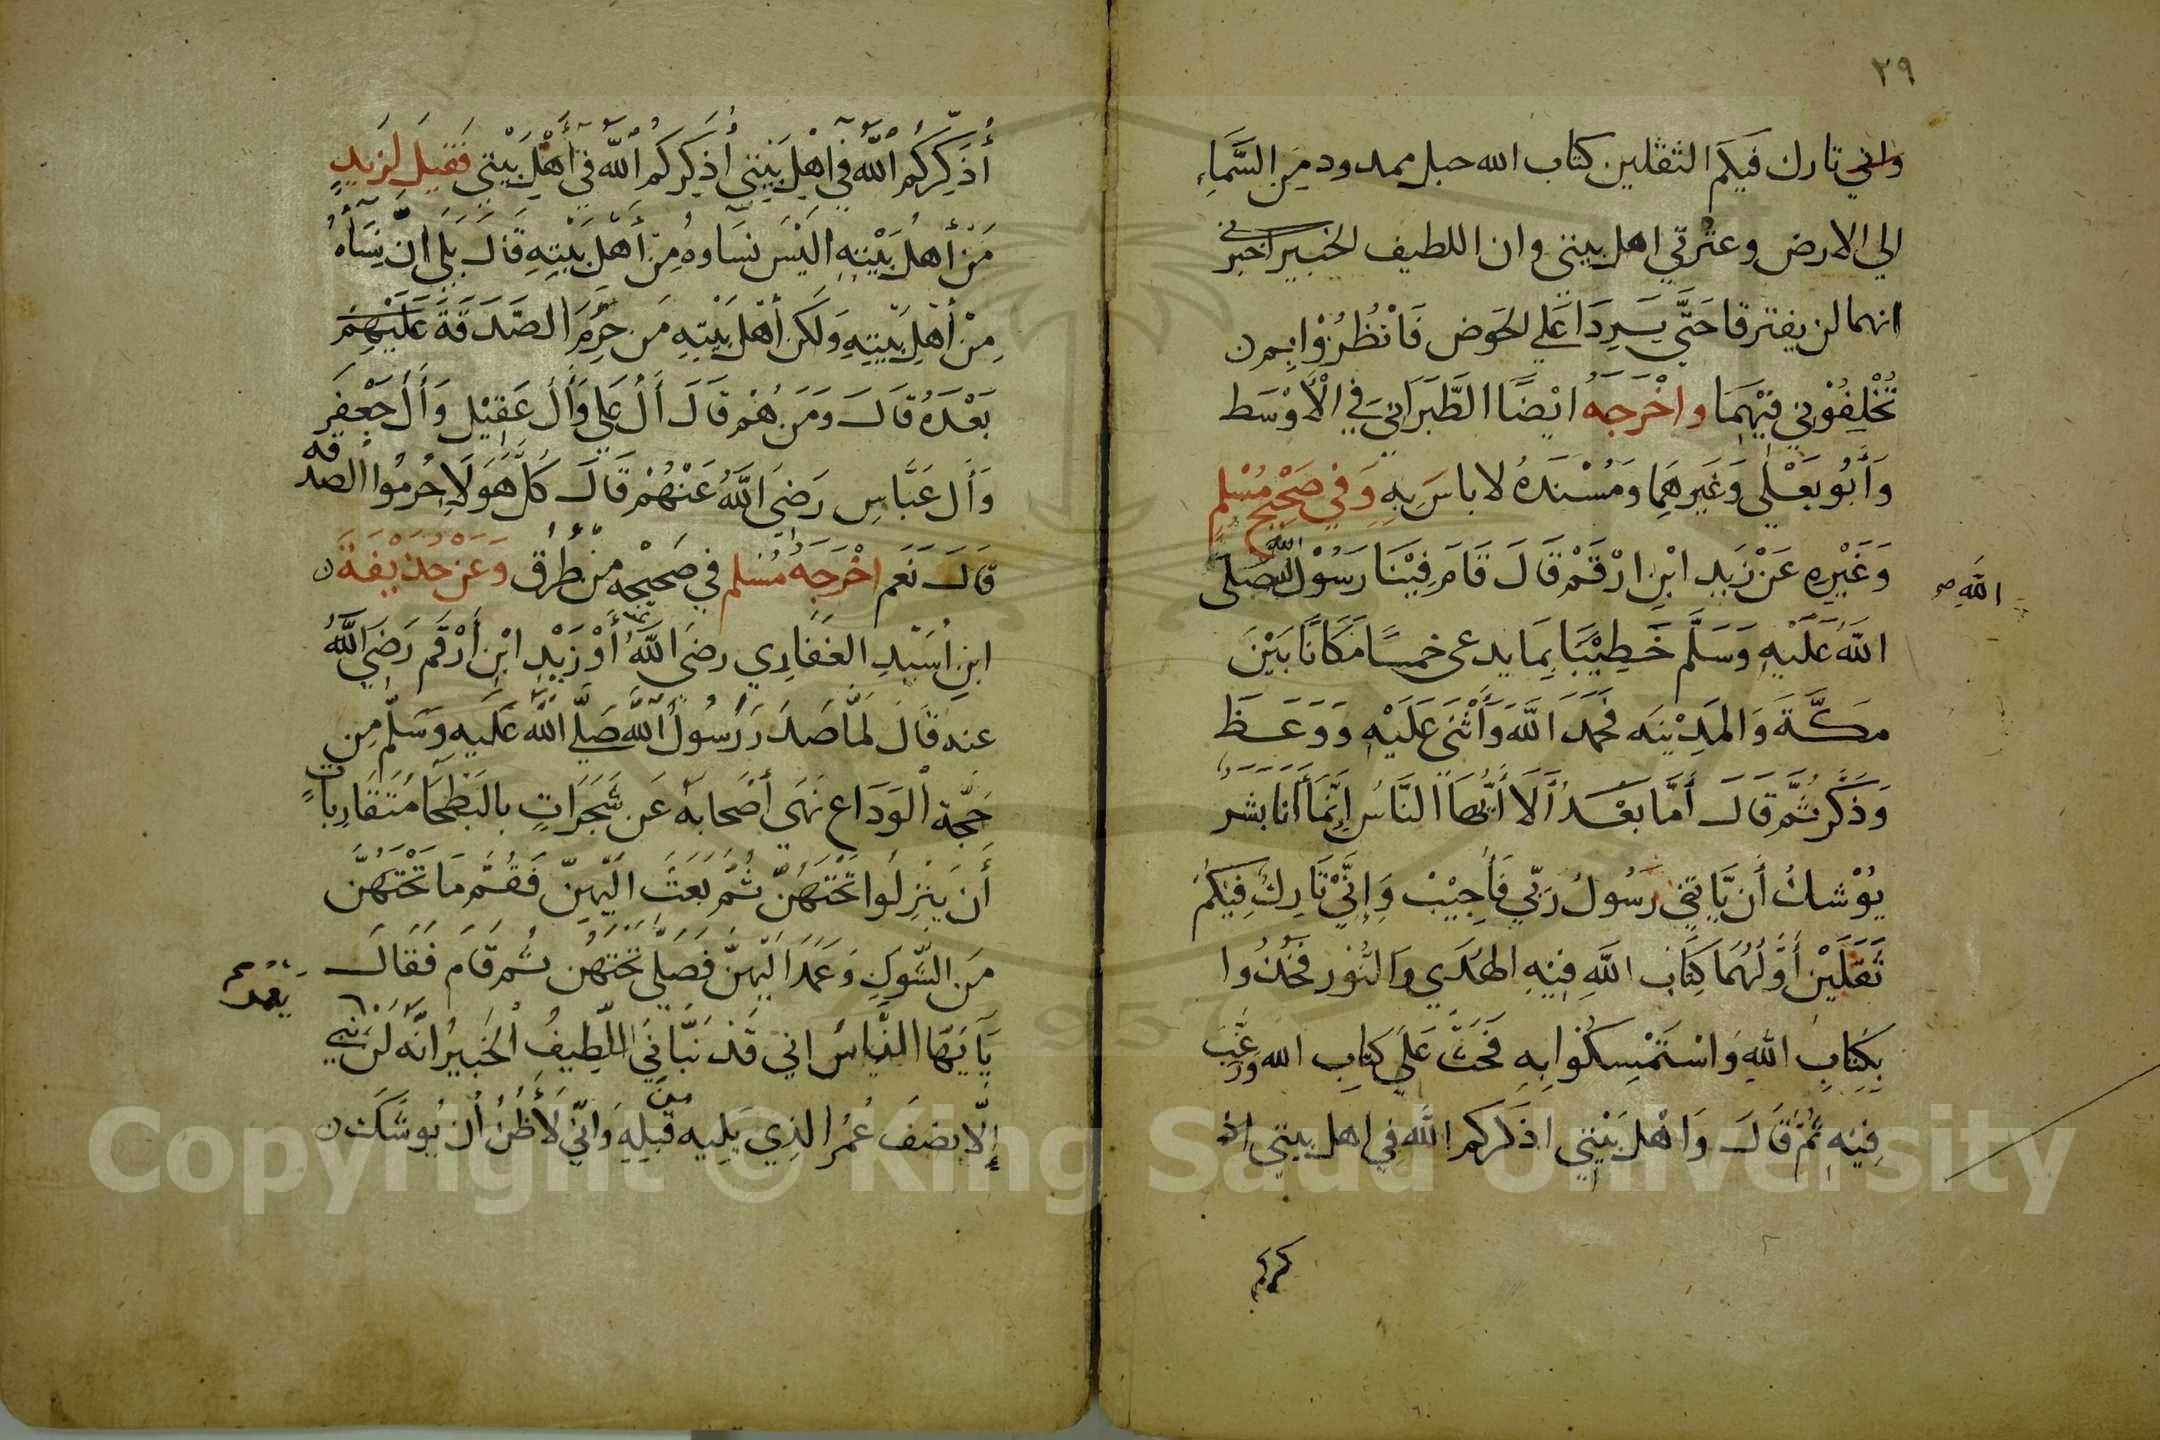 ٢٩
واني تارك فيكم الثقلين كتاب الله حبل ممدود مِنَ السَّمَاءِ
الي الارض وعترتي اهل بيتي وان اللطيف الخبير اخبرني
انهما لن يفترقا حَتَّي يَرِدَا عَلي الحَوض فَانْظُرُوْا بِمَ
تُخْلِفُوْنِي فِيْهِمَا واخْرَجَهُ ايْضًا الطَّبَرَانِي فِي الْأَوْسَط
وَأَبُو يَعْلَى وَغَيرهِمَا وَمُسْنَدَهُ لا باسَ بِهِ وَفِي صَحِيْح مُسْلِم
وَغَيْرِهِ عَنْ زَيد ابْنِ ارْقَمْ قَالَ قَامَ فِيْنَا رَسُوْل الله صَلى
الله صح
اللهُ عَلَيْهِ وَسَلَّم خَطِيْبًا بِمَا يدعى خمسًا مَكَانًا بَيْنَ
مَكَّةَ وَالمَدِيْنَه فَحَمَدَ اللَّهَ وَأَثْنَى عَلَيْهِ وَوَعَظَ
وَذَكَّرَ ثُمَّ قَالَ أَمَّا بَعْدُ أَلَا أَيُّهَا النَّاسُ إِنَّمَا أَنَا بَشَرٌ
يُوْشكُ أَن يَّاتِيَ رَسُولُ رَبّي فَأُجِيْبْ وَإِنَّيْ تَارِكٌ فِيكمْ
ثَقَلَيْنِ أَوَّلُهُمَا كِتَاب اللَّهِ فِيْهِ الهُدَي وَالنُّوْر فَخُذُوا
بِكِتَابِ اللهِ وَاسْتَمْسِكُوا بِهِ فَحَثَّ عَلَي كتاب الله وَرَغَّبَ
فِيْهِ ثُمَّ قَالَ وَاهْل بَيْتِي اذَكركم اللَّهَ فِي اهل بيتي
أُذَكِّرُكُم اللَّهَ فِي اَهْلِ بَيْتِي أذَكِّرُكُمُ اللَّهَ فِي أَهْلِ بَيْتِي فَقِيلَ لِزَيدٍ
مَنْ أهلُ بَيْتِهِ اليْسَ نسَاوهُ مِنْ أَهْل بَيْتِهِ قَالَ بَلَى إِنَّ نِسَأهُ
مِنْ أَهْلِ بَيْتِهِ وَلكن أهْل بَيْتِهِ مَن حُرِمَ الصَّدَقَةَ عَلَيْهِمْ
بَعْدَهُ قَالَ وَمَن هُمْ قَالَ أَلُ عَلي وَأَل عَقِيْل وَأَل جَعْفر
وَأَل عَبَّاسِ رَضِيَ اللَّهُ عَنْهُمْ قَالَ كُلُّ هَوَلَا حُرِمُوا الصدقه
قَالَ نَعَم اخْرَجَهُ مُسْلم في صَحِيْحِه مِنْ طُرُق وَعَنْ حُذَيْفَةَ
ابن اُسَيْدِ الغفَارِي رضَى اللَّهُ أَوْ زَيْدِ ابْنِ أَرْقَم رَضِي اللَّهُ
عنه قَالَ لَمَّا صَدَرَ رَسُولُ اللَّه صَلَّي اللَّه عَلَيهِ وَسَلّم مِن
حَجّة الْوَدَاع نَهَى أصْحَابَه عَن شَجَرَاتٍ بالبَطْحَا مُتَقَارِبَاتٍ
أَن يَنْزِلُوا تَحْتَهُنّ ثُمَّ بَعَثَ اليْهِنّ فَقُمَّ مَا تَحْتَهُنَّ
مَن الشَّوكِ وَعَمَدَ اليْهِنَّ فَصَلَّى تَحْتَهُن ثُم قَامَ فَقَالَ
يعمر
يَأَيّهَا النَّاسُ اني قَدْ نَبَّانِيَ اللَّطِيفُ الخَبِيرُ انَّهُ لَنْ نبي
إلّا نصْفَ عُمُر الذِي يَلِيه مِن قَبْلِهِ وَانّي لَأَظُنُ أَن يُوشَك
Copyright © King Saud University